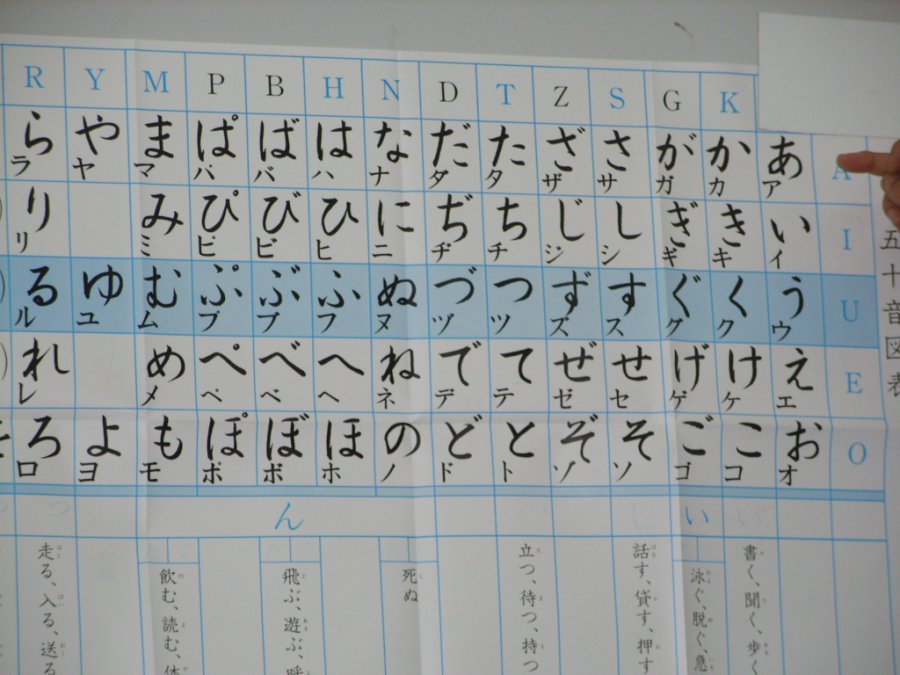 R Y M P B H N D T Z S G K
ら や ま ぱ ば は な だ た ざ さ が か あ A
ラ ヤ マ パ バ ハ ナ ダ タ ザ サ ガ カ ア
り み ぴ び ひ に ぢ ち じ し ぎ き い I
リ ミ ピ ビ ヒ ニ ヂ チ ジ シ ギ キ イ
る ゆ む ぷ ぶ ふ ぬ づ つ ず す ぐ く う U
ル ユ ム プ ブ フ ヌ ヅ ツ ズ ス グ ク ウ
れ め ぺ べ へ ね で て ぜ せ げ け え E
レ メ ペ ベ ヘ ネ デ テ ゼ セ ゲ ケ エ
ろ よ も ぽ ぼ ほ の ど と ぞ そ ご こ お O
ロ ヨ モ ポ ボ ホ ノ ド ト ゾ ソ ゴ コ オ
五十音図表
ん い
書く、聞く、歩く
泳ぐ、脱ぐ、急
話す、貸す、押す
立つ、待つ、持つ
死ぬ
飛ぶ、遊ぶ、呼
飲む、読む、休
走る、入る、送る